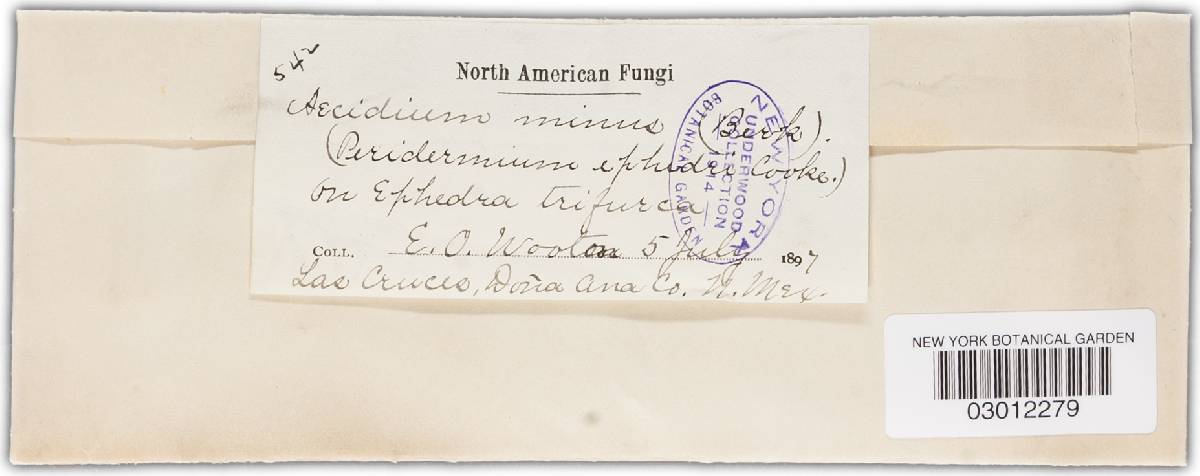 542
North American Fungi
Aecidium minus (Berk).
(Peridermium ephedri Cooke.)
on Ephedra trifurca
COLL. E. O. Wooton 5 July 1897
Las Cruces, Doña Ana Co. N. Mex.
NEW YORK
BOTANICAL GARDEN
UNDERWOOD
COLLECTION
1914
NEW YORK BOTANICAL GARDEN
03012279